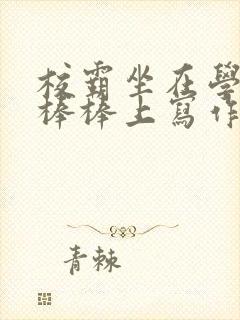 校霸坐在學
棒棒上寫作
青棘